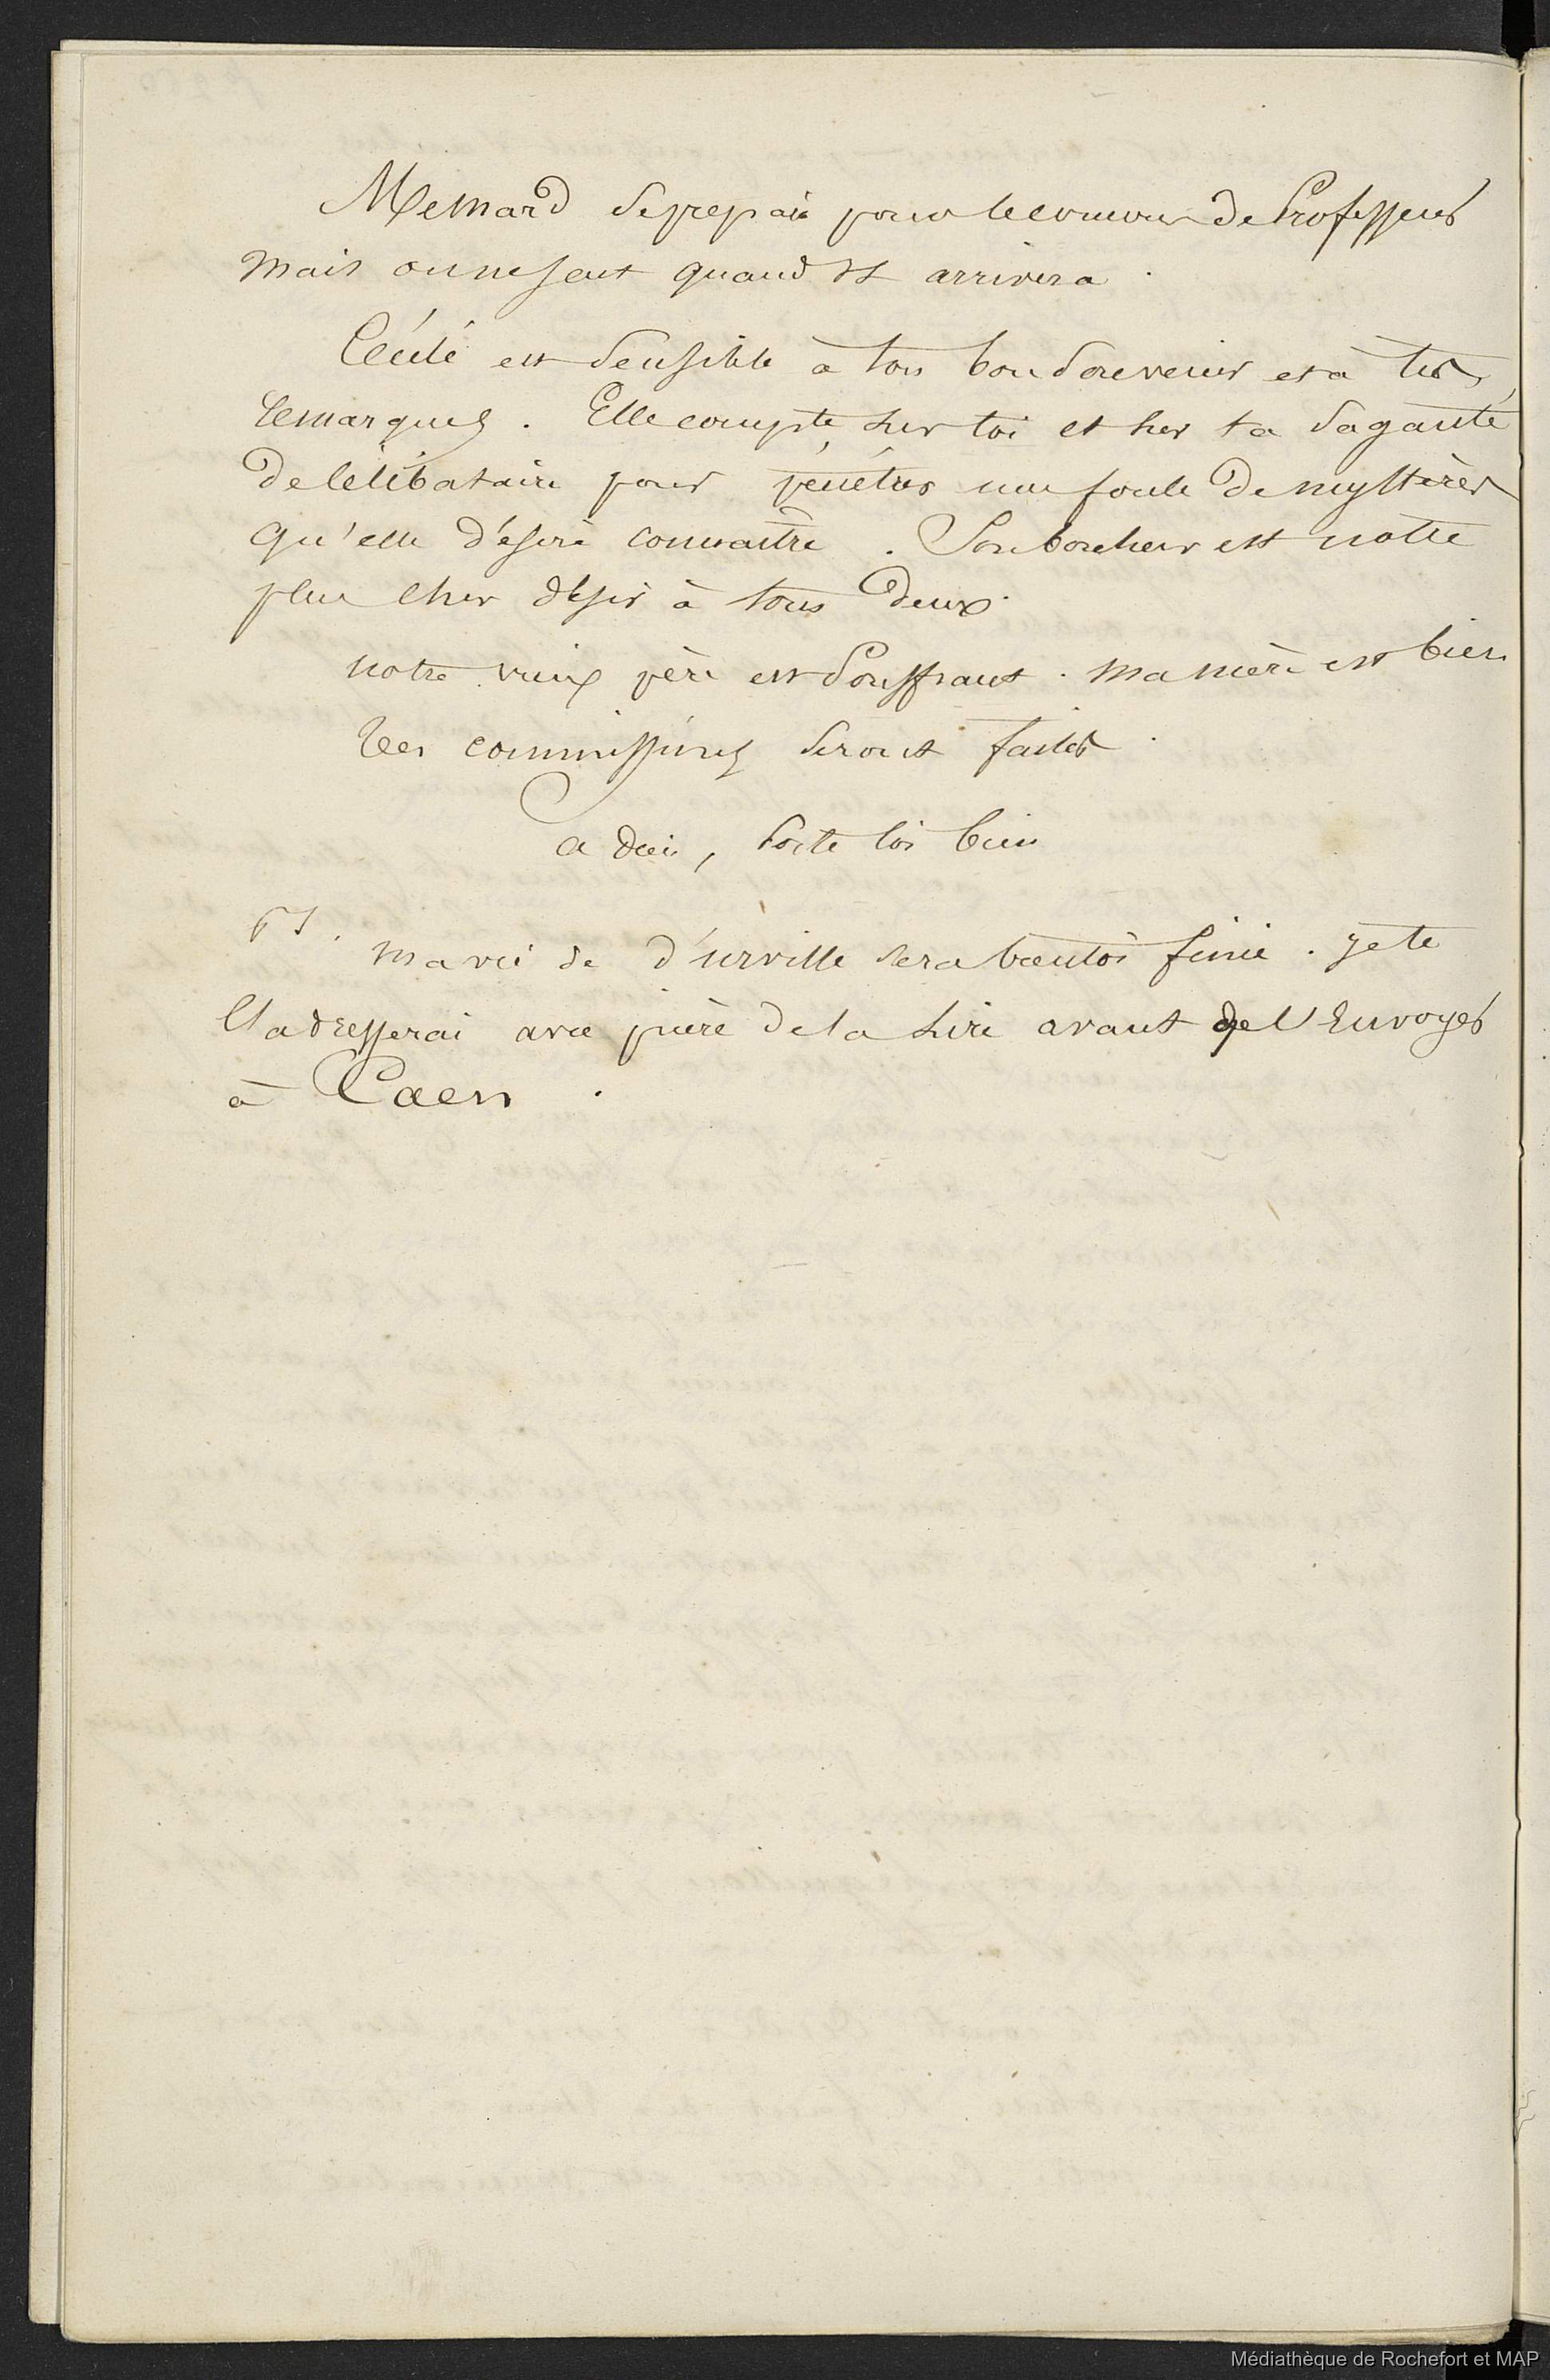 Mesnard se prepare pour le concours de Professeur
mais on ne sait quand il arrivera.
Cécile est sensible à ton bon souvenir et à tes
remarques. Elle compte sur toi et sur ta sagacité
de célibataire pour pénétrer une foule de mystères
qu'elle désire connaître. Son bonheur est notre
plus cher désir à tous deux.
notre vieux père est souffrant. ma mère est bien
Tes commissions seront faites.
adieu, Porte toi bien
PS. ma vie de d'urville sera bientôt finie. Je te
l'adresserai avec prière de la lire avant de l'envoyer
à Caen.
Médiathèque de Rochefort et MAP